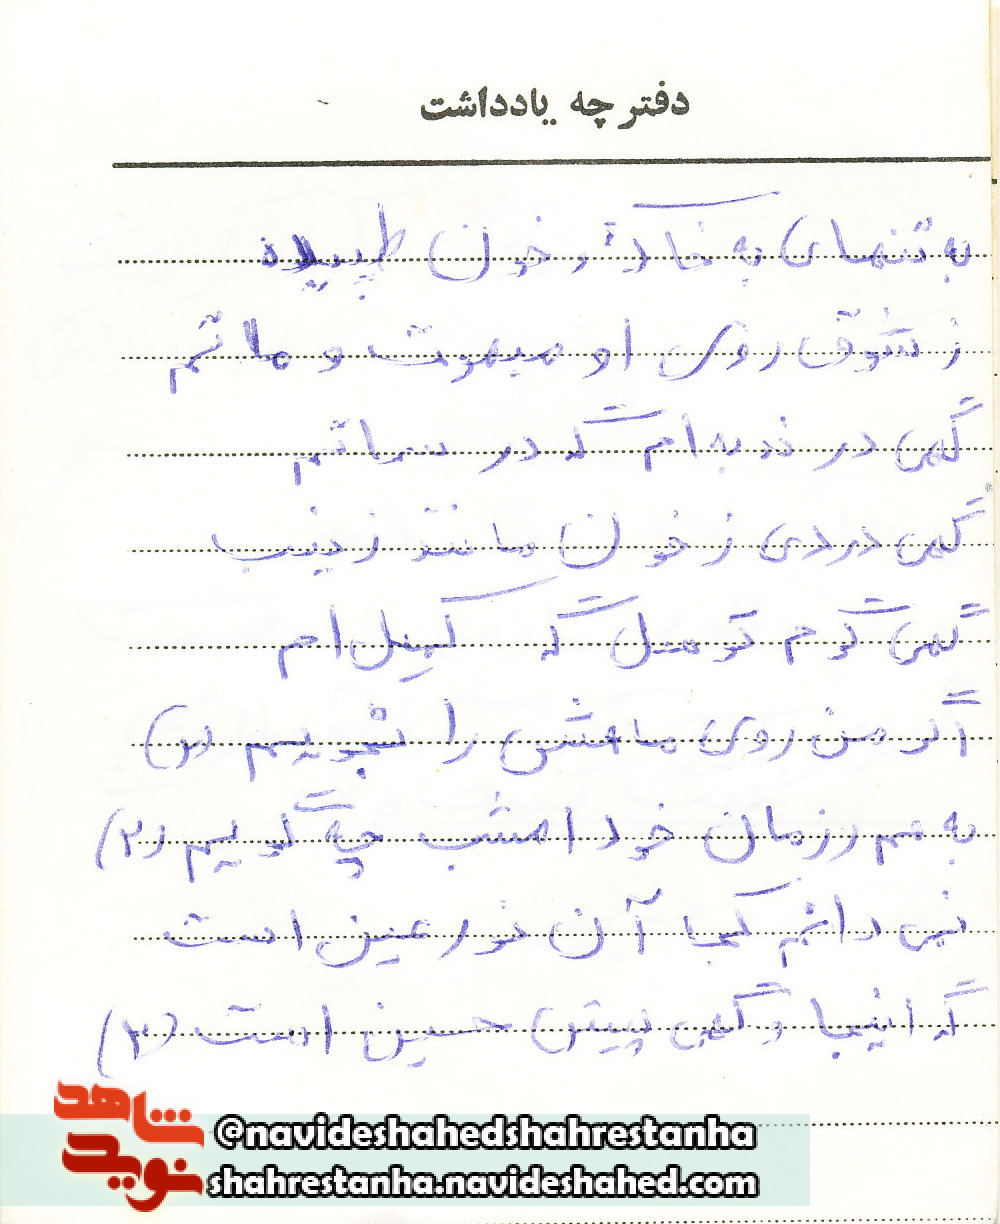 دفتر چه یادداشت
به تنهای به خاک و خون طپیده
ز شوق روی او مبهوت و ماتم
گهی در ندبه ام گه در سماتم
گهی دردی ز خون مانند زینب
گهی گرم توسل گه کمیل ام
اگر من روی ماهش را نجویم (۲)
به هم رزمان خود امشب چه گویم (۲)
نمی دانم کجا آن نور عین است
گه اینجا و گهی پیش حسین است (۲)
شاهد
نوید
@navideshahedshahrestanha
shahrestanha.navideshahed.com